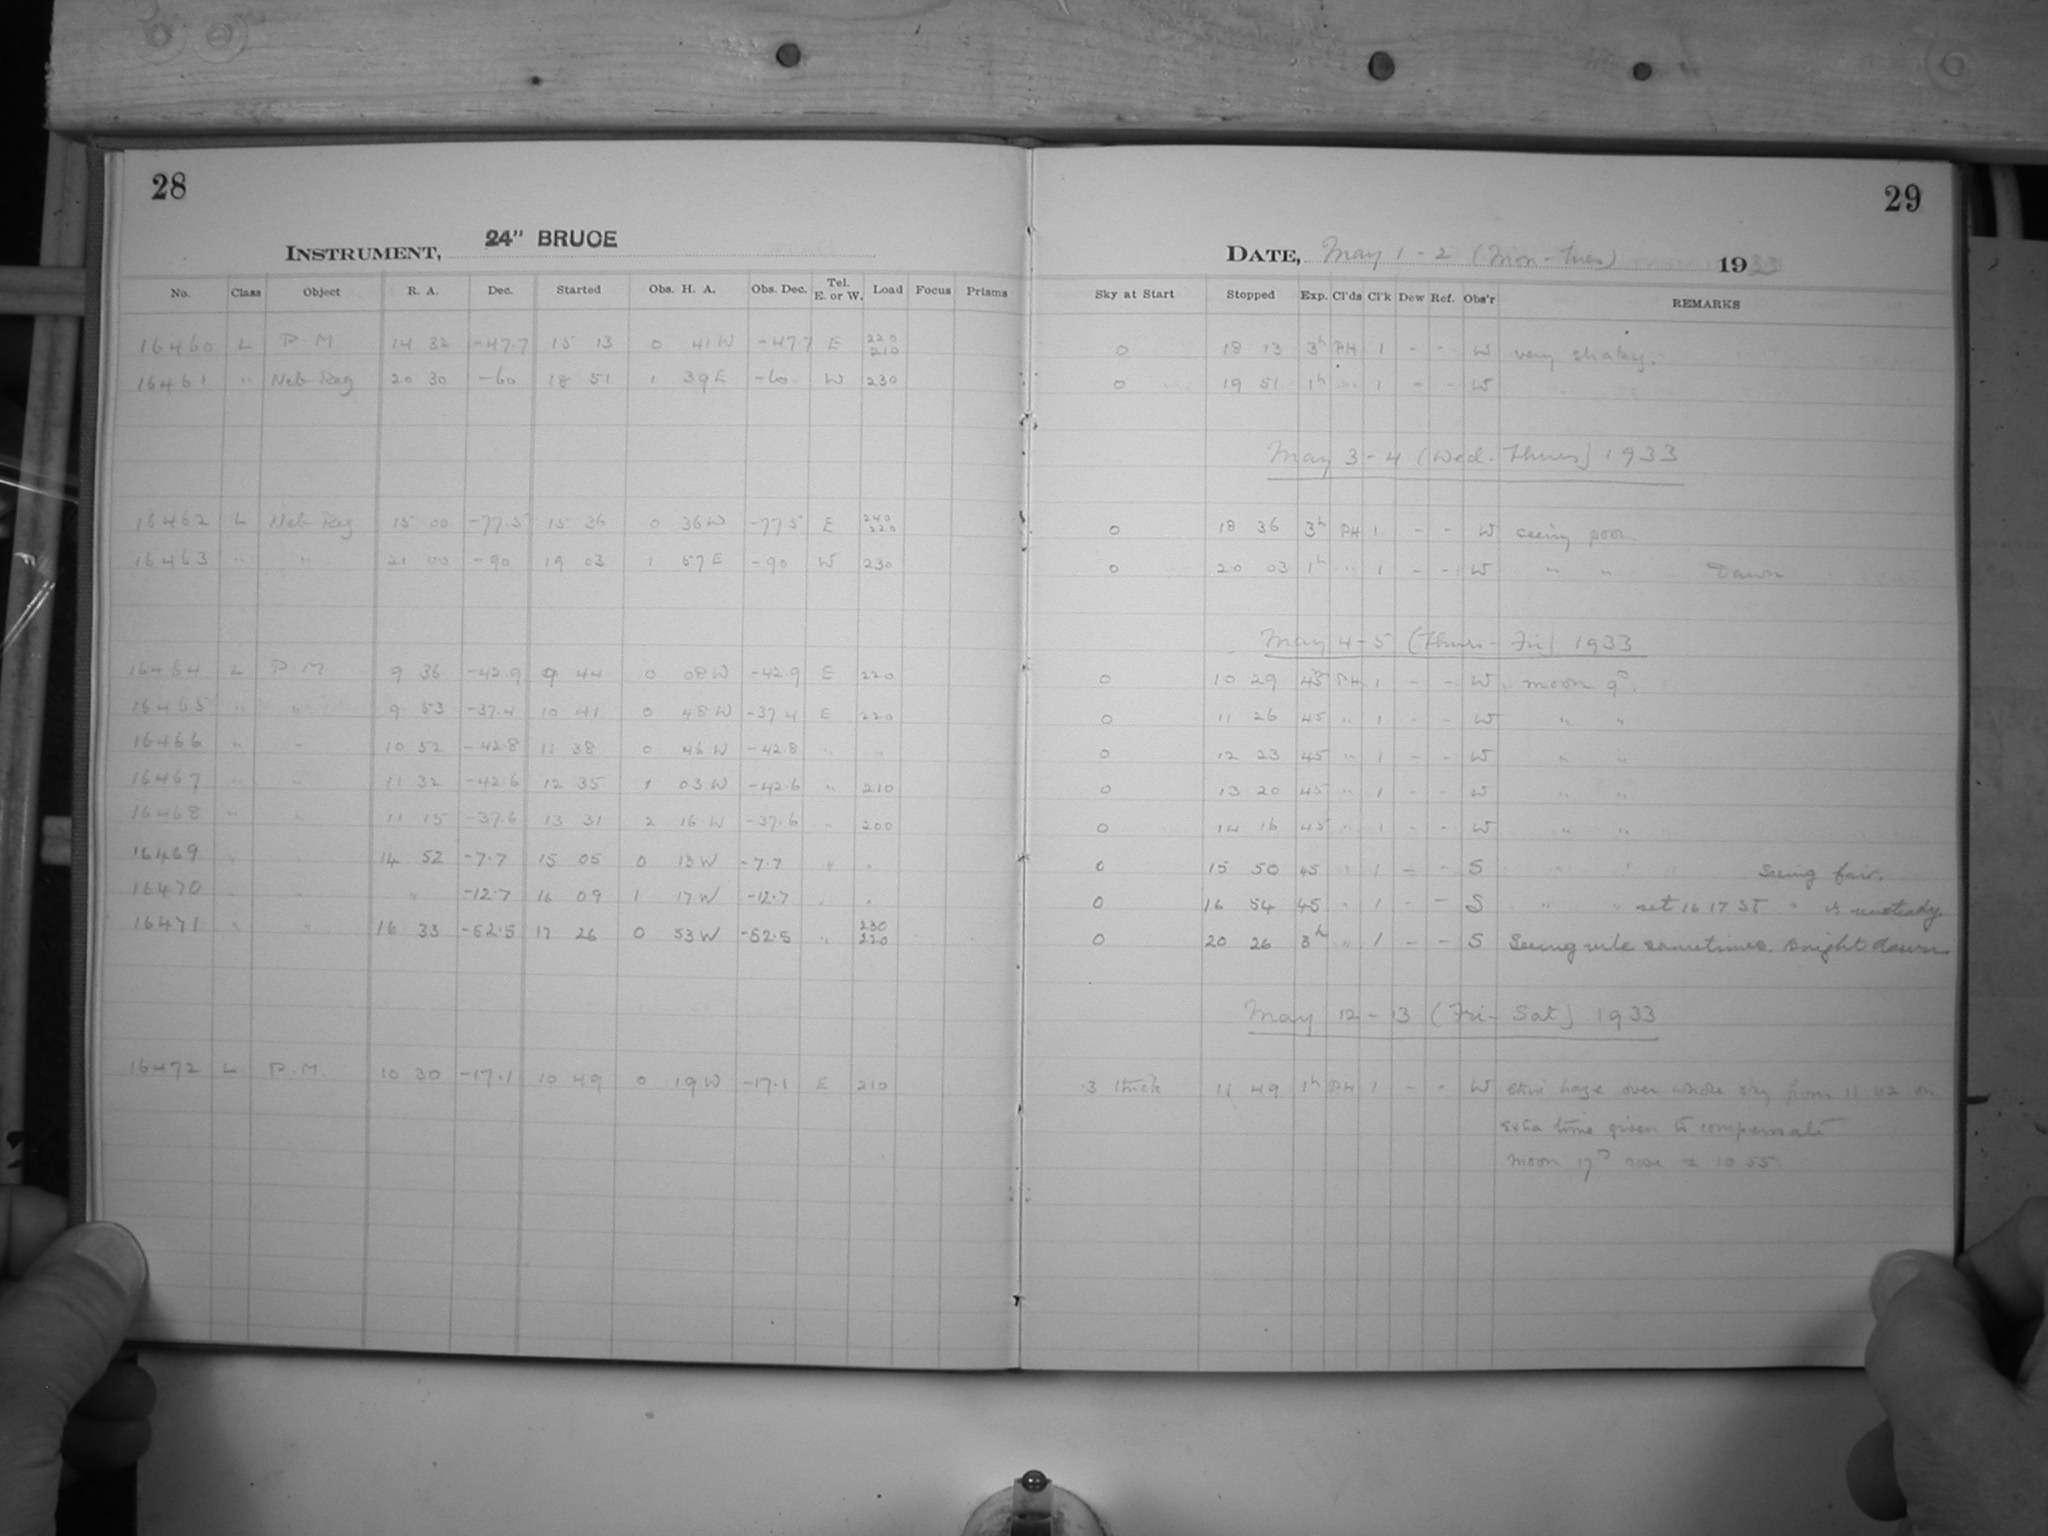 28
INSTRUMENT, 24" BRUCE
No. Class Object R. A. Dec. Started Obs. H. A. Obs. Dec. Tel. E. or W. Load Focus Prisms
16460 L P.M 14 32 -47.7 15 13 0 41 W -47.7 E 220 210
16461 " Neb Reg 20 30 -60 18 51 1 39 E -60 W 230
16462 L Neb Reg 15 00 -77.5 15 36 0 36 W -77.5 E 240 220
16463 " " 21 00 -90 19 03 1 57 E -90 W 230
16464 L P.M 9 36 -42.9 9 44 0 08 W -42.9 E 220
16465 " " 9 53 -37.4 10 41 0 48 W -37.4 E 220
16466 " " 10 52 -42.8 11 38 0 46 W -42.8 " "
16467 " " 11 32 -42.6 12 35 1 03 W -42.6 " 210
16468 " " 11 15 -37.6 13 31 2 16 W -37.6 " 200
16469 " " 14 52 -7.7 15 05 0 13 W -7.7 " "
16470 " " " -12.7 16 09 1 17 W -12.7 " "
16471 " " 16 33 -52.5 17 26 0 53 W -52.5 " 230 220
16472 L P.M. 10 30 -17.1 10 49 0 19 W -17.1 E 210
29
DATE, May 1-2 (Mon-Tues) 1933
Sky at Start Stopped Exp. Cl'ds Cl'k Dew Ref. Obs'r REMARKS
0 18 13 3h PH 1 - - W very shaky.
0 19 51 1h " 1 - - W
May 3-4 (Wed. Thurs) 1933
0 18 36 3h PH 1 - - W seeing poor.
0 20 03 1h " 1 - - W " " Dawn
May 4-5 (Thurs-Fri) 1933
0 10 29 45 PH 1 - - W moon 9D.
0 11 26 45 " 1 - - W " "
0 12 23 45 " 1 - - W " "
0 13 20 45 " 1 - - W " "
0 14 16 45 " 1 - - W " "
0 15 50 45 " 1 - - S " " Seeing fair.
0 16 54 45 " 1 - - S " " set 16 17 ST " is unsteady.
0 20 26 3h " 1 - - S Seeing vile sometimes. Bright dawn
May 12-13 (Fri-Sat) 1933
3 thick 11 49 1h PH 1 - - W thin haze over whole sky from 11 02 on
Extra time given to compensate
moon 17D rose 10 55